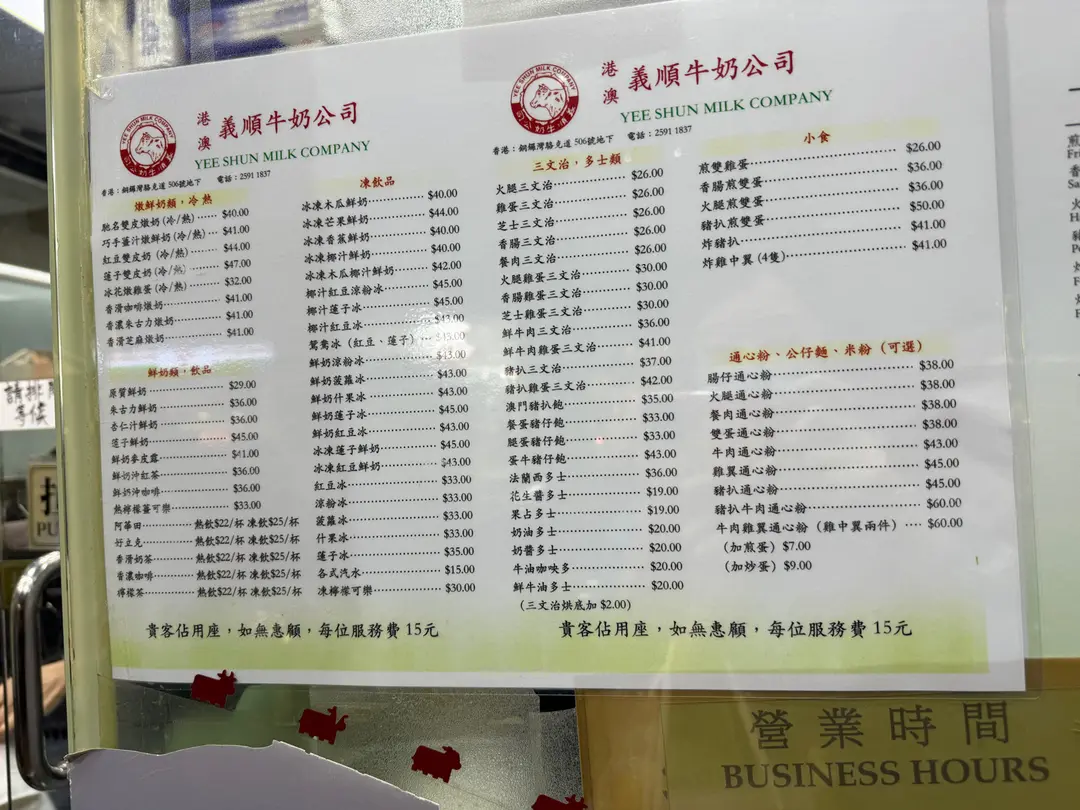 YEE SHUN MILK COMPANY
港澳 義順牛奶公司
YEE SHUN MILK COMPANY
香港：銅鑼灣駱克道 506號地下 電話：2591 1837
燉鮮奶類，冷熱
馳名雙皮燉奶 (冷/熱) $40.00
巧手薑汁燉鮮奶 (冷/熱) $41.00
紅豆雙皮奶 (冷/熱) $44.00
蓮子雙皮奶 (冷/熱) $47.00
冰花燉雞蛋 (冷/熱) $32.00
香滑咖啡燉奶 $41.00
香濃朱古力燉奶 $41.00
香滑芝麻燉奶 $41.00
鮮奶類，飲品
原質鮮奶 $29.00
朱古力鮮奶 $36.00
杏仁汁鮮奶 $36.00
蓮子鮮奶 $45.00
鮮奶麥皮露 $41.00
鮮奶沖紅茶 $36.00
鮮奶沖咖啡 $36.00
熱檸檬薑可樂 $33.00
阿華田 熱飲$22/杯 凍飲$25/杯
好立克 熱飲$22/杯 凍飲$25/杯
香滑奶茶 熱飲$22/杯 凍飲$25/杯
香濃咖啡 熱飲$22/杯 凍飲$25/杯
檸檬茶 熱飲$22/杯 凍飲$25/杯
凍飲品
冰凍木瓜鮮奶 $40.00
冰凍芒果鮮奶 $44.00
冰凍香蕉鮮奶 $40.00
冰凍椰汁鮮奶 $40.00
冰凍木瓜椰汁鮮奶 $42.00
椰汁紅豆涼粉冰 $45.00
椰汁蓮子冰 $45.00
椰汁紅豆冰 $43.00
鴛鴦冰 (紅豆、蓮子) $45.00
鮮奶涼粉冰 $43.00
鮮奶菠蘿冰 $43.00
鮮奶什果冰 $43.00
鮮奶蓮子冰 $45.00
鮮奶紅豆冰 $43.00
冰凍蓮子鮮奶 $45.00
冰凍紅豆鮮奶 $43.00
紅豆冰 $33.00
涼粉冰 $33.00
菠蘿冰 $33.00
什果冰 $33.00
蓮子冰 $35.00
各式汽水 $15.00
凍檸檬可樂 $30.00
貴客佔用座，如無惠顧，每位服務費 15元
YEE SHUN MILK COMPANY
港澳 義順牛奶公司
YEE SHUN MILK COMPANY
香港：銅鑼灣駱克道 506號地下 電話：2591 1837
三文治，多士類
火腿三文治 $26.00
雞蛋三文治 $26.00
芝士三文治 $26.00
香腸三文治 $26.00
餐肉三文治 $26.00
火腿雞蛋三文治 $30.00
香腸雞蛋三文治 $30.00
芝士雞蛋三文治 $30.00
鮮牛肉三文治 $36.00
鮮牛肉雞蛋三文治 $41.00
豬扒三文治 $37.00
豬扒雞蛋三文治 $42.00
澳門豬扒飽 $35.00
餐蛋豬仔飽 $33.00
腿蛋豬仔飽 $33.00
蛋牛豬仔飽 $43.00
法蘭西多士 $36.00
花生醬多士 $19.00
果占多士 $19.00
奶油多士 $20.00
奶醬多士 $20.00
牛油咖央多 $20.00
鮮牛油多士 $20.00
(三文治烘底加 $2.00)
小食
煎雙雞蛋 $26.00
香腸煎雙蛋 $36.00
火腿煎雙蛋 $36.00
豬扒煎雙蛋 $50.00
炸豬扒 $41.00
炸雞中翼 (4隻) $41.00
通心粉、公仔麵、米粉 (可選)
腸仔通心粉 $38.00
火腿通心粉 $38.00
餐肉通心粉 $38.00
雙蛋通心粉 $38.00
牛肉通心粉 $43.00
雞翼通心粉 $45.00
豬扒通心粉 $45.00
豬扒牛肉通心粉 $60.00
牛肉雞翼通心粉 (雞中翼兩件) $60.00
(加煎蛋) $7.00
(加炒蛋) $9.00
貴客佔用座，如無惠顧，每位服務費 15元
營業時間
BUSINESS HOURS